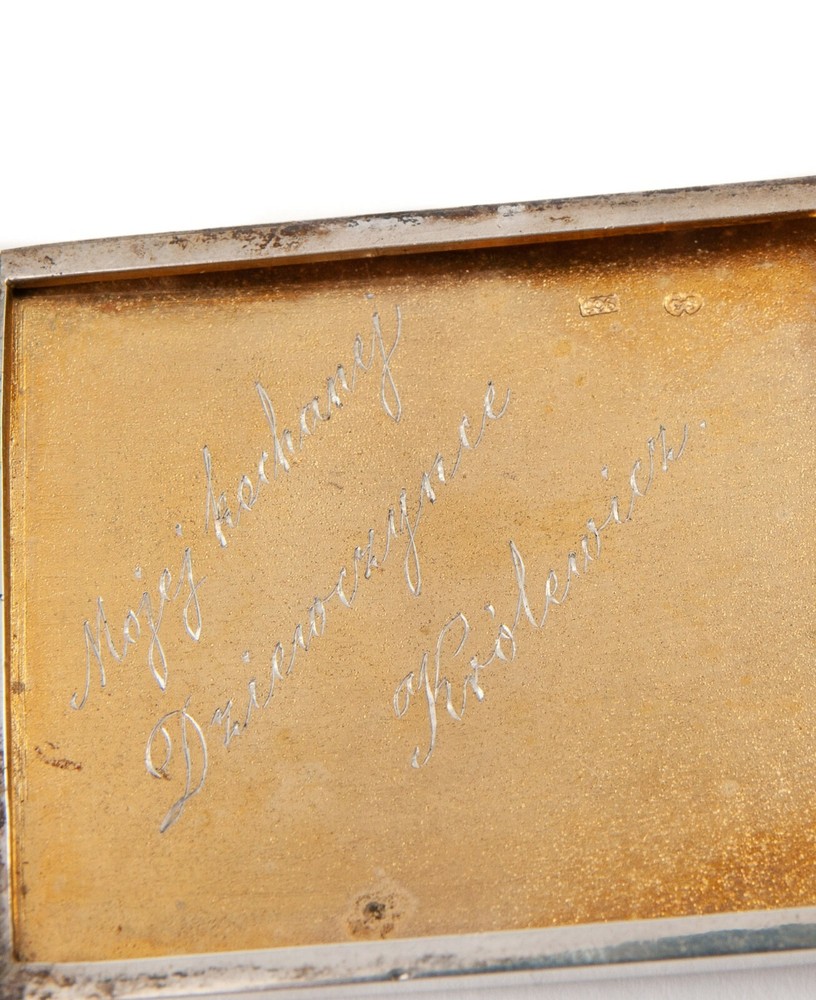 Mojej kochanej
Dziewczynce
Królewicz.